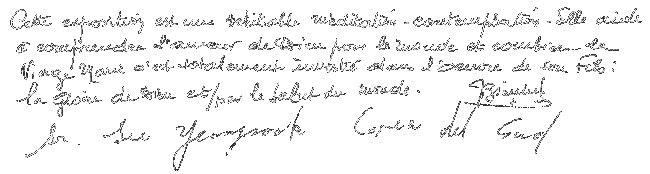 Cette exposition est une véritable méditation - contemplation. Elle aide
à comprendre l'amour de Dieu pour le monde et combien la
Vierge Marie s'est totalement investie dans l'oeuvre de son Fils :
la gloire de Dieu et/par le salut du monde.
Sr. Seo Yeongsook Corea del Sud